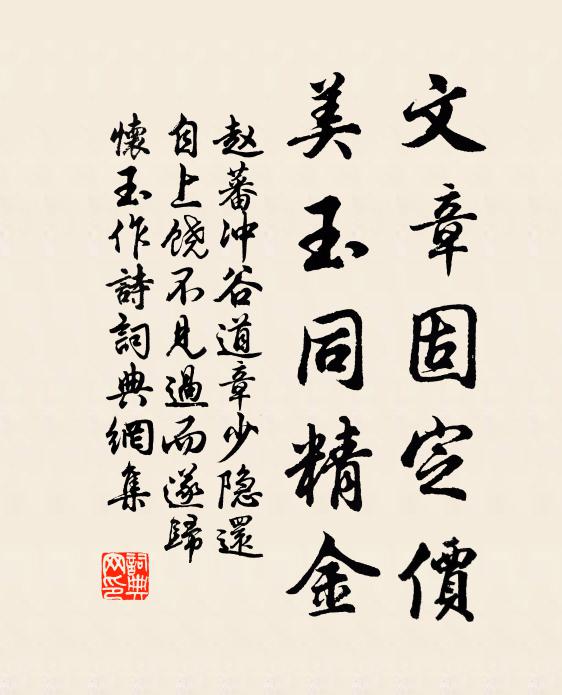 文章固定價
美玉同精金
赵蕃沖谷道章少隐還
自上饶不見過而遂歸
懷玉作詩詞典網集
詞典网印